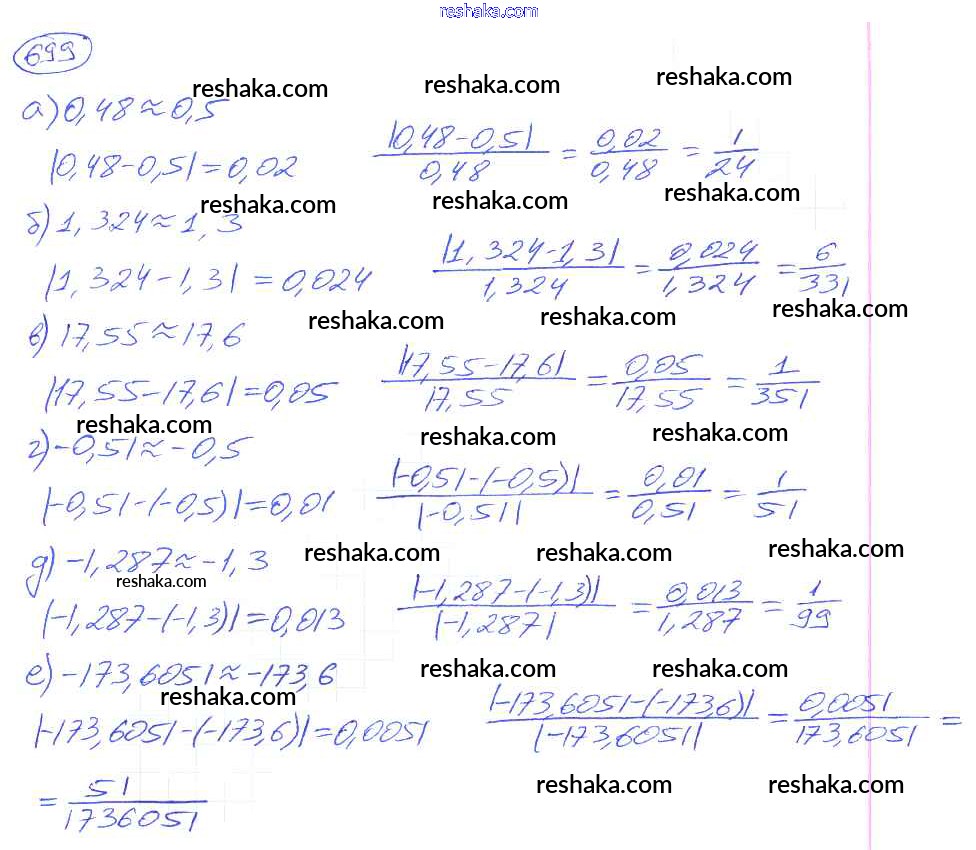 reshaka.com
699
reshaka.com reshaka.com reshaka.com
а) 0,48 ≈ 0,5
|0,48 - 0,5| = 0,02 |0,48 - 0,5| / 0,48 = 0,02 / 0,48 = 1 / 24
reshaka.com reshaka.com reshaka.com
б) 1,324 ≈ 1,3
|1,324 - 1,3| = 0,024 |1,324 - 1,3| / 1,324 = 0,024 / 1,324 = 6 / 331
reshaka.com reshaka.com reshaka.com
в) 17,55 ≈ 17,6
|17,55 - 17,6| = 0,05 |17,55 - 17,6| / 17,55 = 0,05 / 17,55 = 1 / 351
reshaka.com reshaka.com reshaka.com
г) -0,51 ≈ -0,5
|-0,51 - (-0,5)| = 0,01 |-0,51 - (-0,5)| / |-0,51| = 0,01 / 0,51 = 1 / 51
reshaka.com reshaka.com reshaka.com
д) -1,287 ≈ -1,3
reshaka.com
|-1,287 - (-1,3)| = 0,013 |-1,287 - (-1,3)| / |-1,287| = 0,013 / 1,287 = 1 / 99
reshaka.com reshaka.com
е) -173,6051 ≈ -173,6
reshaka.com
|-173,6051 - (-173,6)| = 0,0051 |-173,6051 - (-173,6)| / |-173,6051| = 0,0051 / 173,6051 =
reshaka.com reshaka.com
= 51 / 1736051